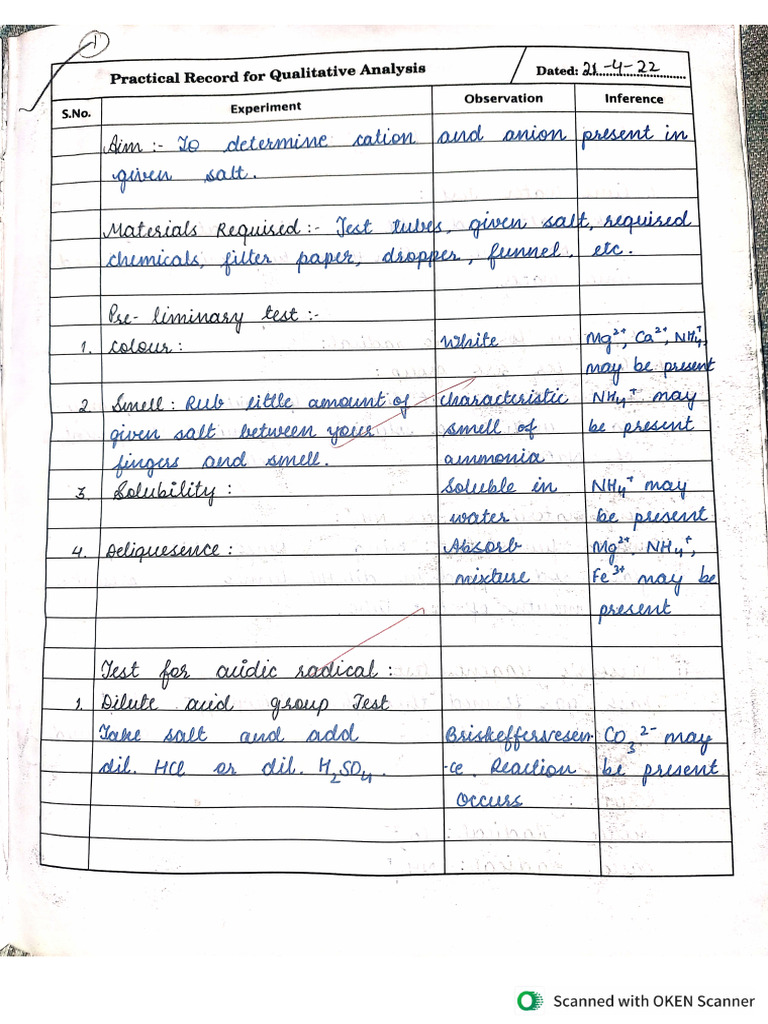 1
Practical Record for Qualitative Analysis
Dated: 21-4-22
S.No. Experiment Observation Inference
Aim :- To determine cation and anion present in
given salt.
Materials Required :- Test tubes, given salt, required
chemicals, filter paper, dropper, funnel, etc.
Pre-liminary test :-
1. Colour : White Mg²⁺, Ca²⁺, NH₄⁺,
may be present
2 Smell : Rub little amount of characteristic NH₄⁺ may
given salt between your smell of be present
fingers and smell. ammonia
3. Solubility : Soluble in NH₄⁺ may
water be present
4. Deliquesence : Absorb Mg²⁺, NH₄⁺,
mixture Fe³⁺ may be
present
Test for acidic radical :
1. Dilute acid group Test
Take salt and add Briskeffervesen- CO₃²⁻ may
dil. HCl or dil. H₂SO₄. -ce Reaction be present
occurs
Scanned with OKEN Scanner